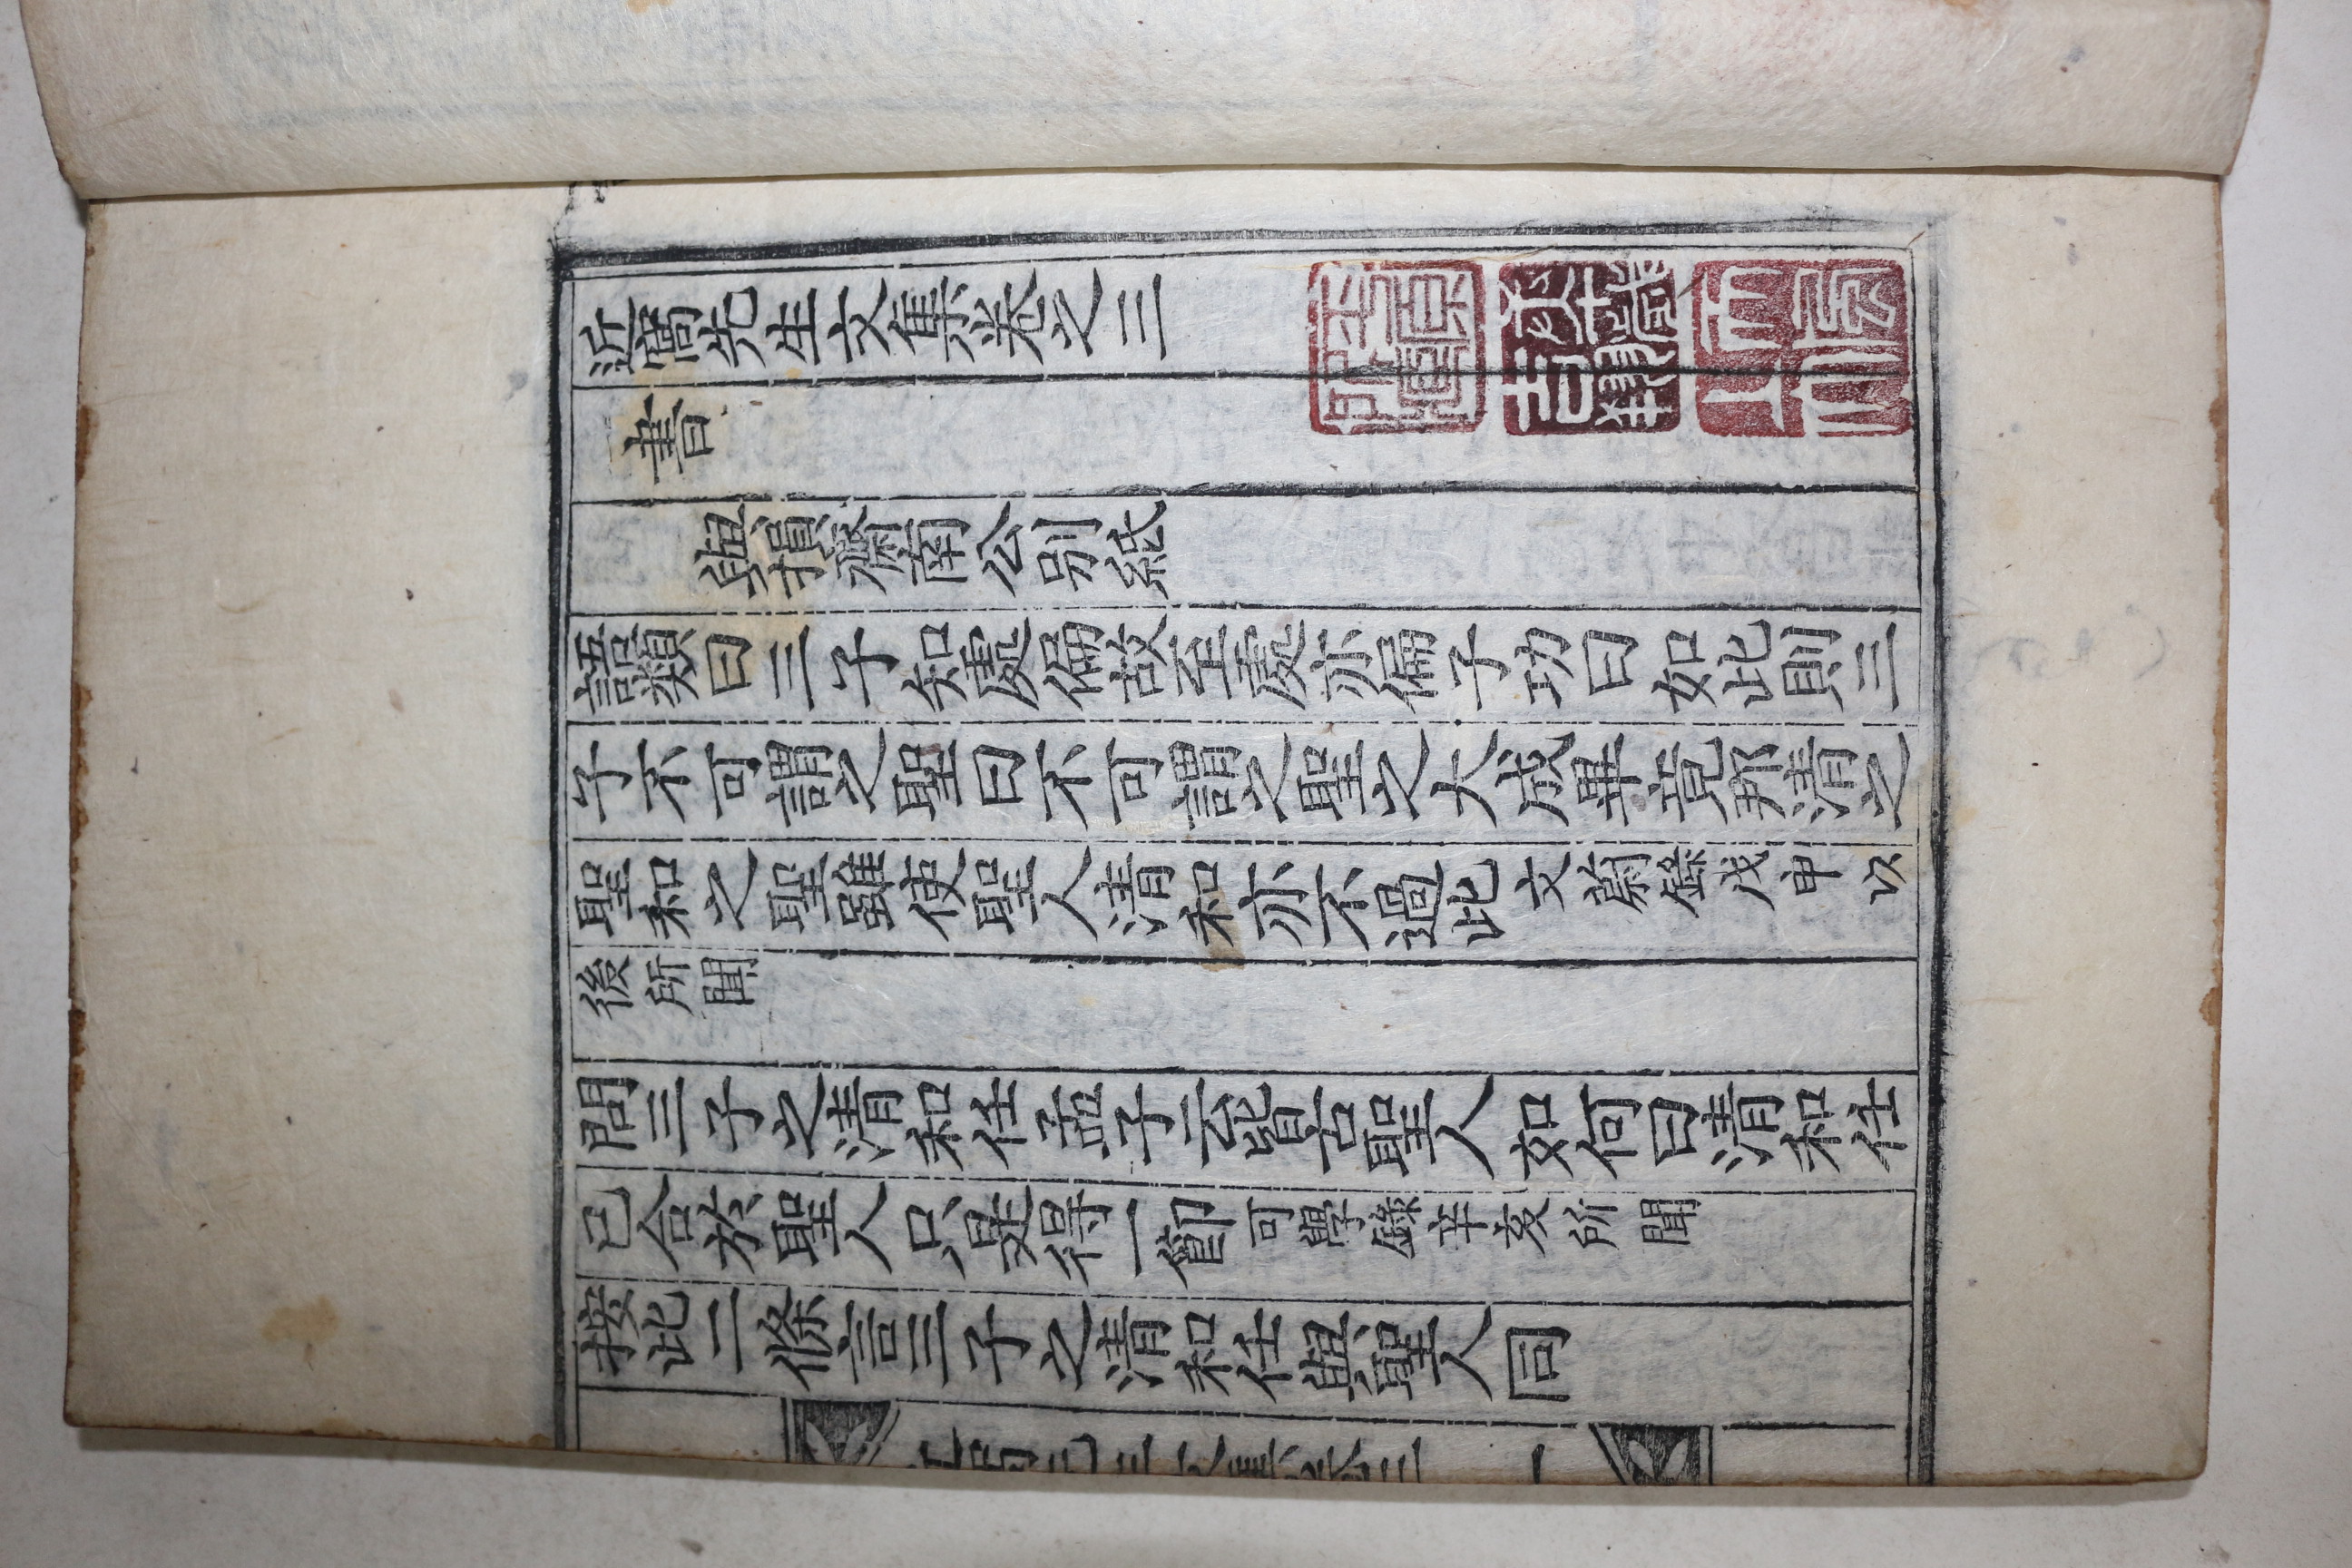 近窩先生文集卷之三
書
與損齋南公別紙
語類曰三子知處偏故至處亦偏子功曰如此則三
子不可謂之聖曰不可謂之聖之大成畢竟那清之
聖和之聖雖使聖人清和亦不過此文蔚錄戊申以
後所聞
問三子之清和任孟子云皆古聖人如何曰清和任
已合於聖人只是得一節可學錄辛亥所聞
按此二條言三子之清和任與聖人同
窩先生文集卷三 一